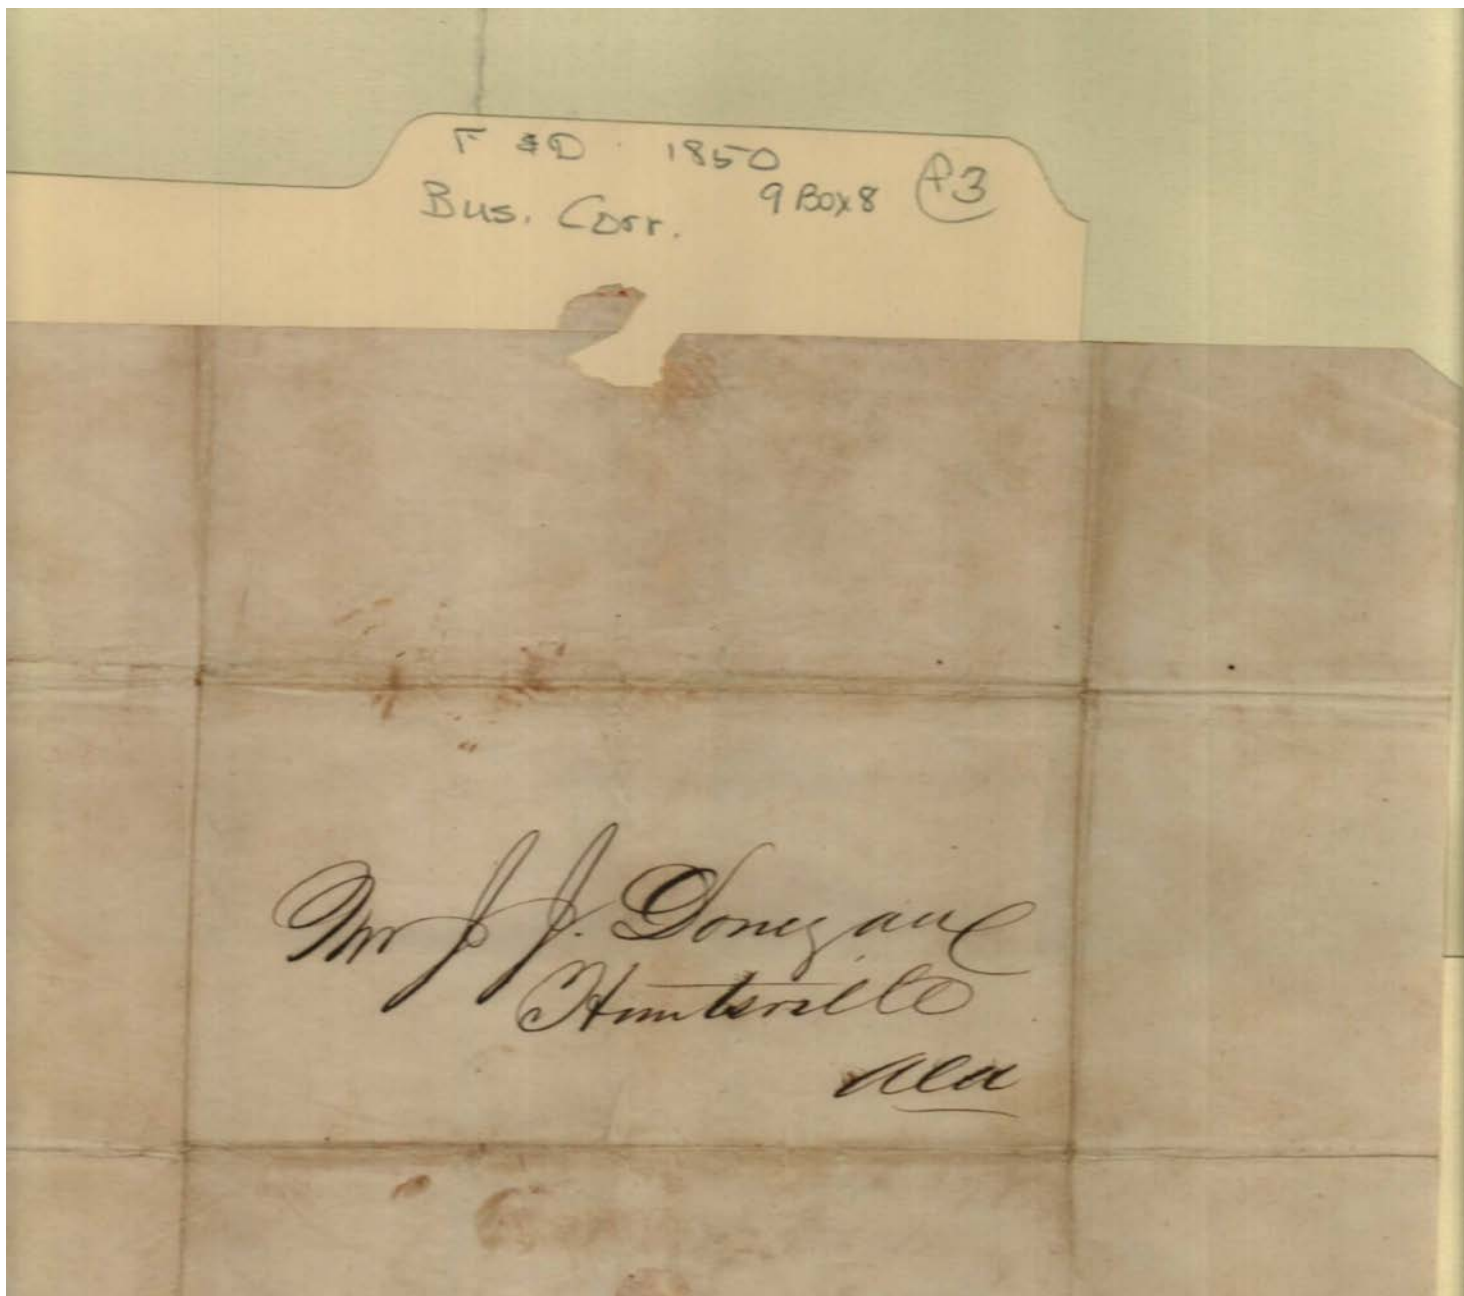 F & D. 1850
Bus. Corr. 9 Box 8 P3
Mr J. J. Donegan
Huntsville
Ala